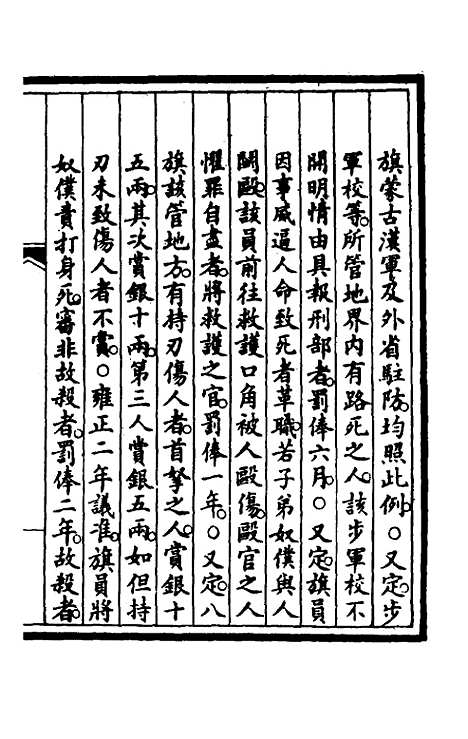 旗蒙古漢軍及外省駐防均照此例。○又定步
軍校等所管地界內有路死之人該步軍校不
開明情由具報刑部者罰俸六月。○又定旗員
因事威逼人命致死者革職若子弟奴僕與人
鬭毆該員前往救護口角被人毆傷毆官之人
懼罪自盡者將救護之官罰俸一年。○又定八
旗該管地方有持刃傷人者首拏之人賞銀十
五兩其次賞銀十兩第三人賞銀五兩如但持
刃未致傷人者不賞。○雍正二年議准旗員將
奴僕責打身死審非故殺者罰俸二年故殺者